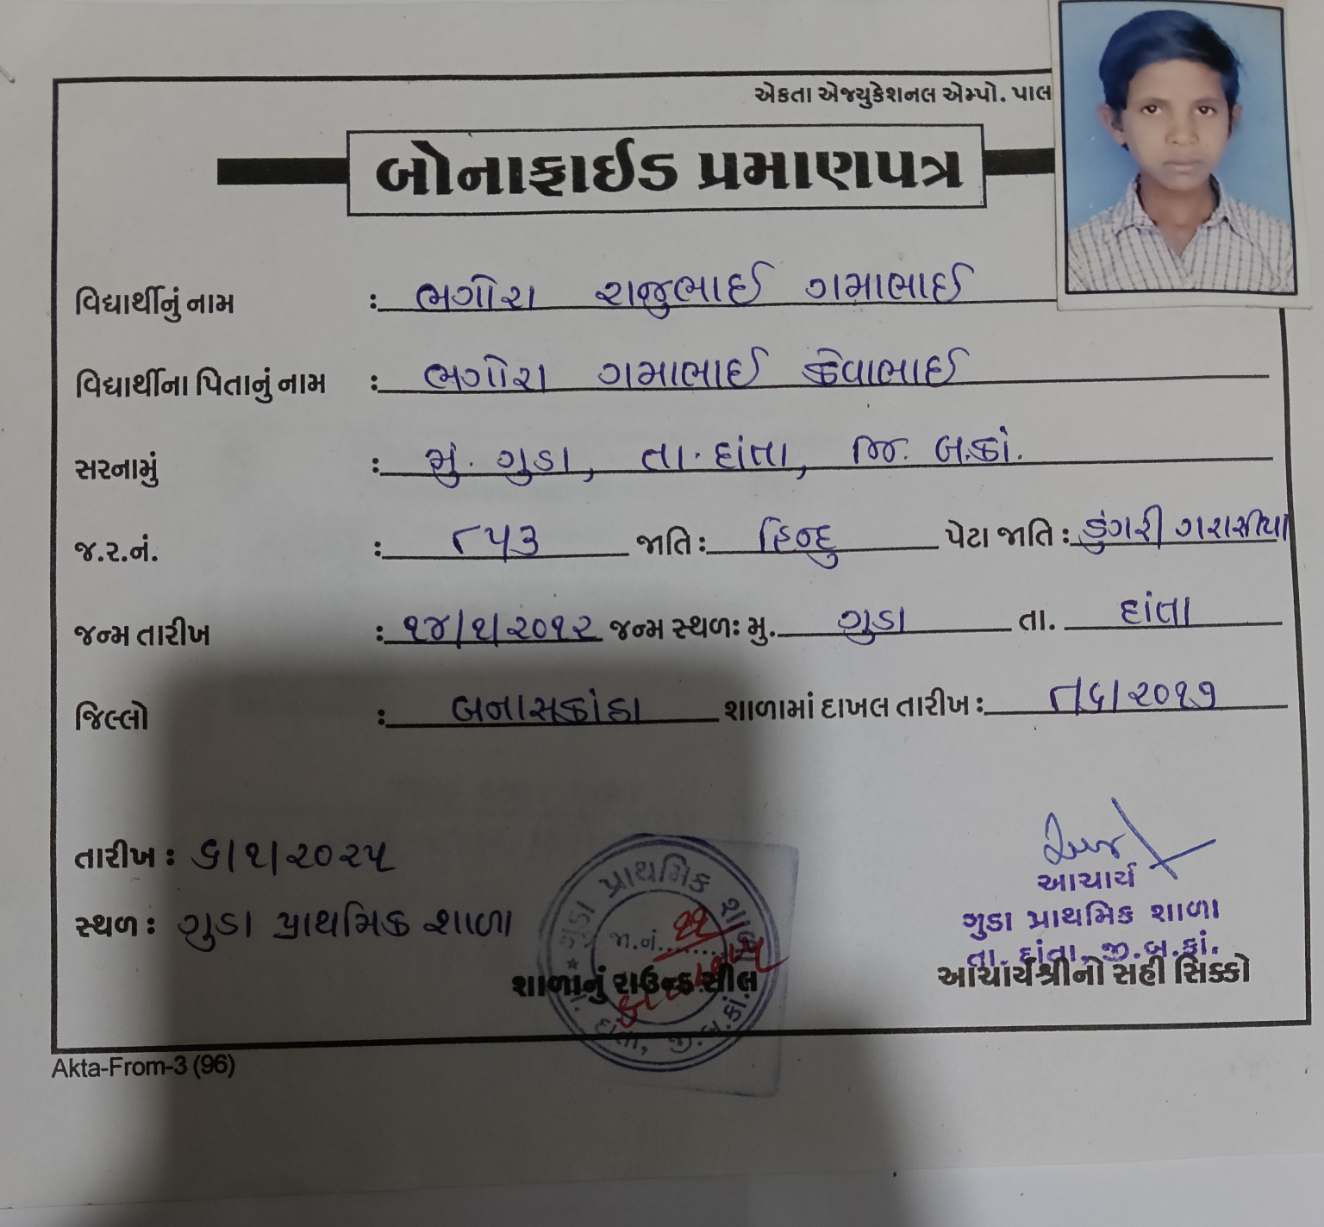 એકતા એજ્યુકેશનલ એમ્પો. પાલ
બોનાફાઈડ પ્રમાણપત્ર
વિદ્યાર્થીનું નામ : ભગોરા રાજુભાઈ ગમાભાઈ
વિદ્યાર્થીના પિતાનું નામ : ભગોરા ગમાભાઈ કેવાભાઈ
સરનામું : મું. ગુડા, તા. દાંતા, જિ. બ.કાં.
જ.ર.નં. : ૮૫૩ જાતિ : હિન્દુ પેટા જાતિ : ડુંગરી ગરાસીયા
જન્મ તારીખ : ૧૪/૧/૨૦૧૨ જન્મ સ્થળઃ મુ. ગુડા તા. દાંતા
જિલ્લો : બનાસકાંઠા શાળામાં દાખલ તારીખ : ૮/૬/૨૦૧૭
તારીખ : ૬/૧/૨૦૨૫
સ્થળ : ગુડા પ્રાથમિક શાળા
ગુડા પ્રાથમિક શાળા
જા.નં.
તા. દાંતા, જી.બ.કાં.
શાળાનું રાઉન્ડ સીલ
આચાર્ય
ગુડા પ્રાથમિક શાળા
તા. દાંતા, જી.બ.કાં.
આચાર્યશ્રીનો સહી સિક્કો
Akta-From-3 (96)